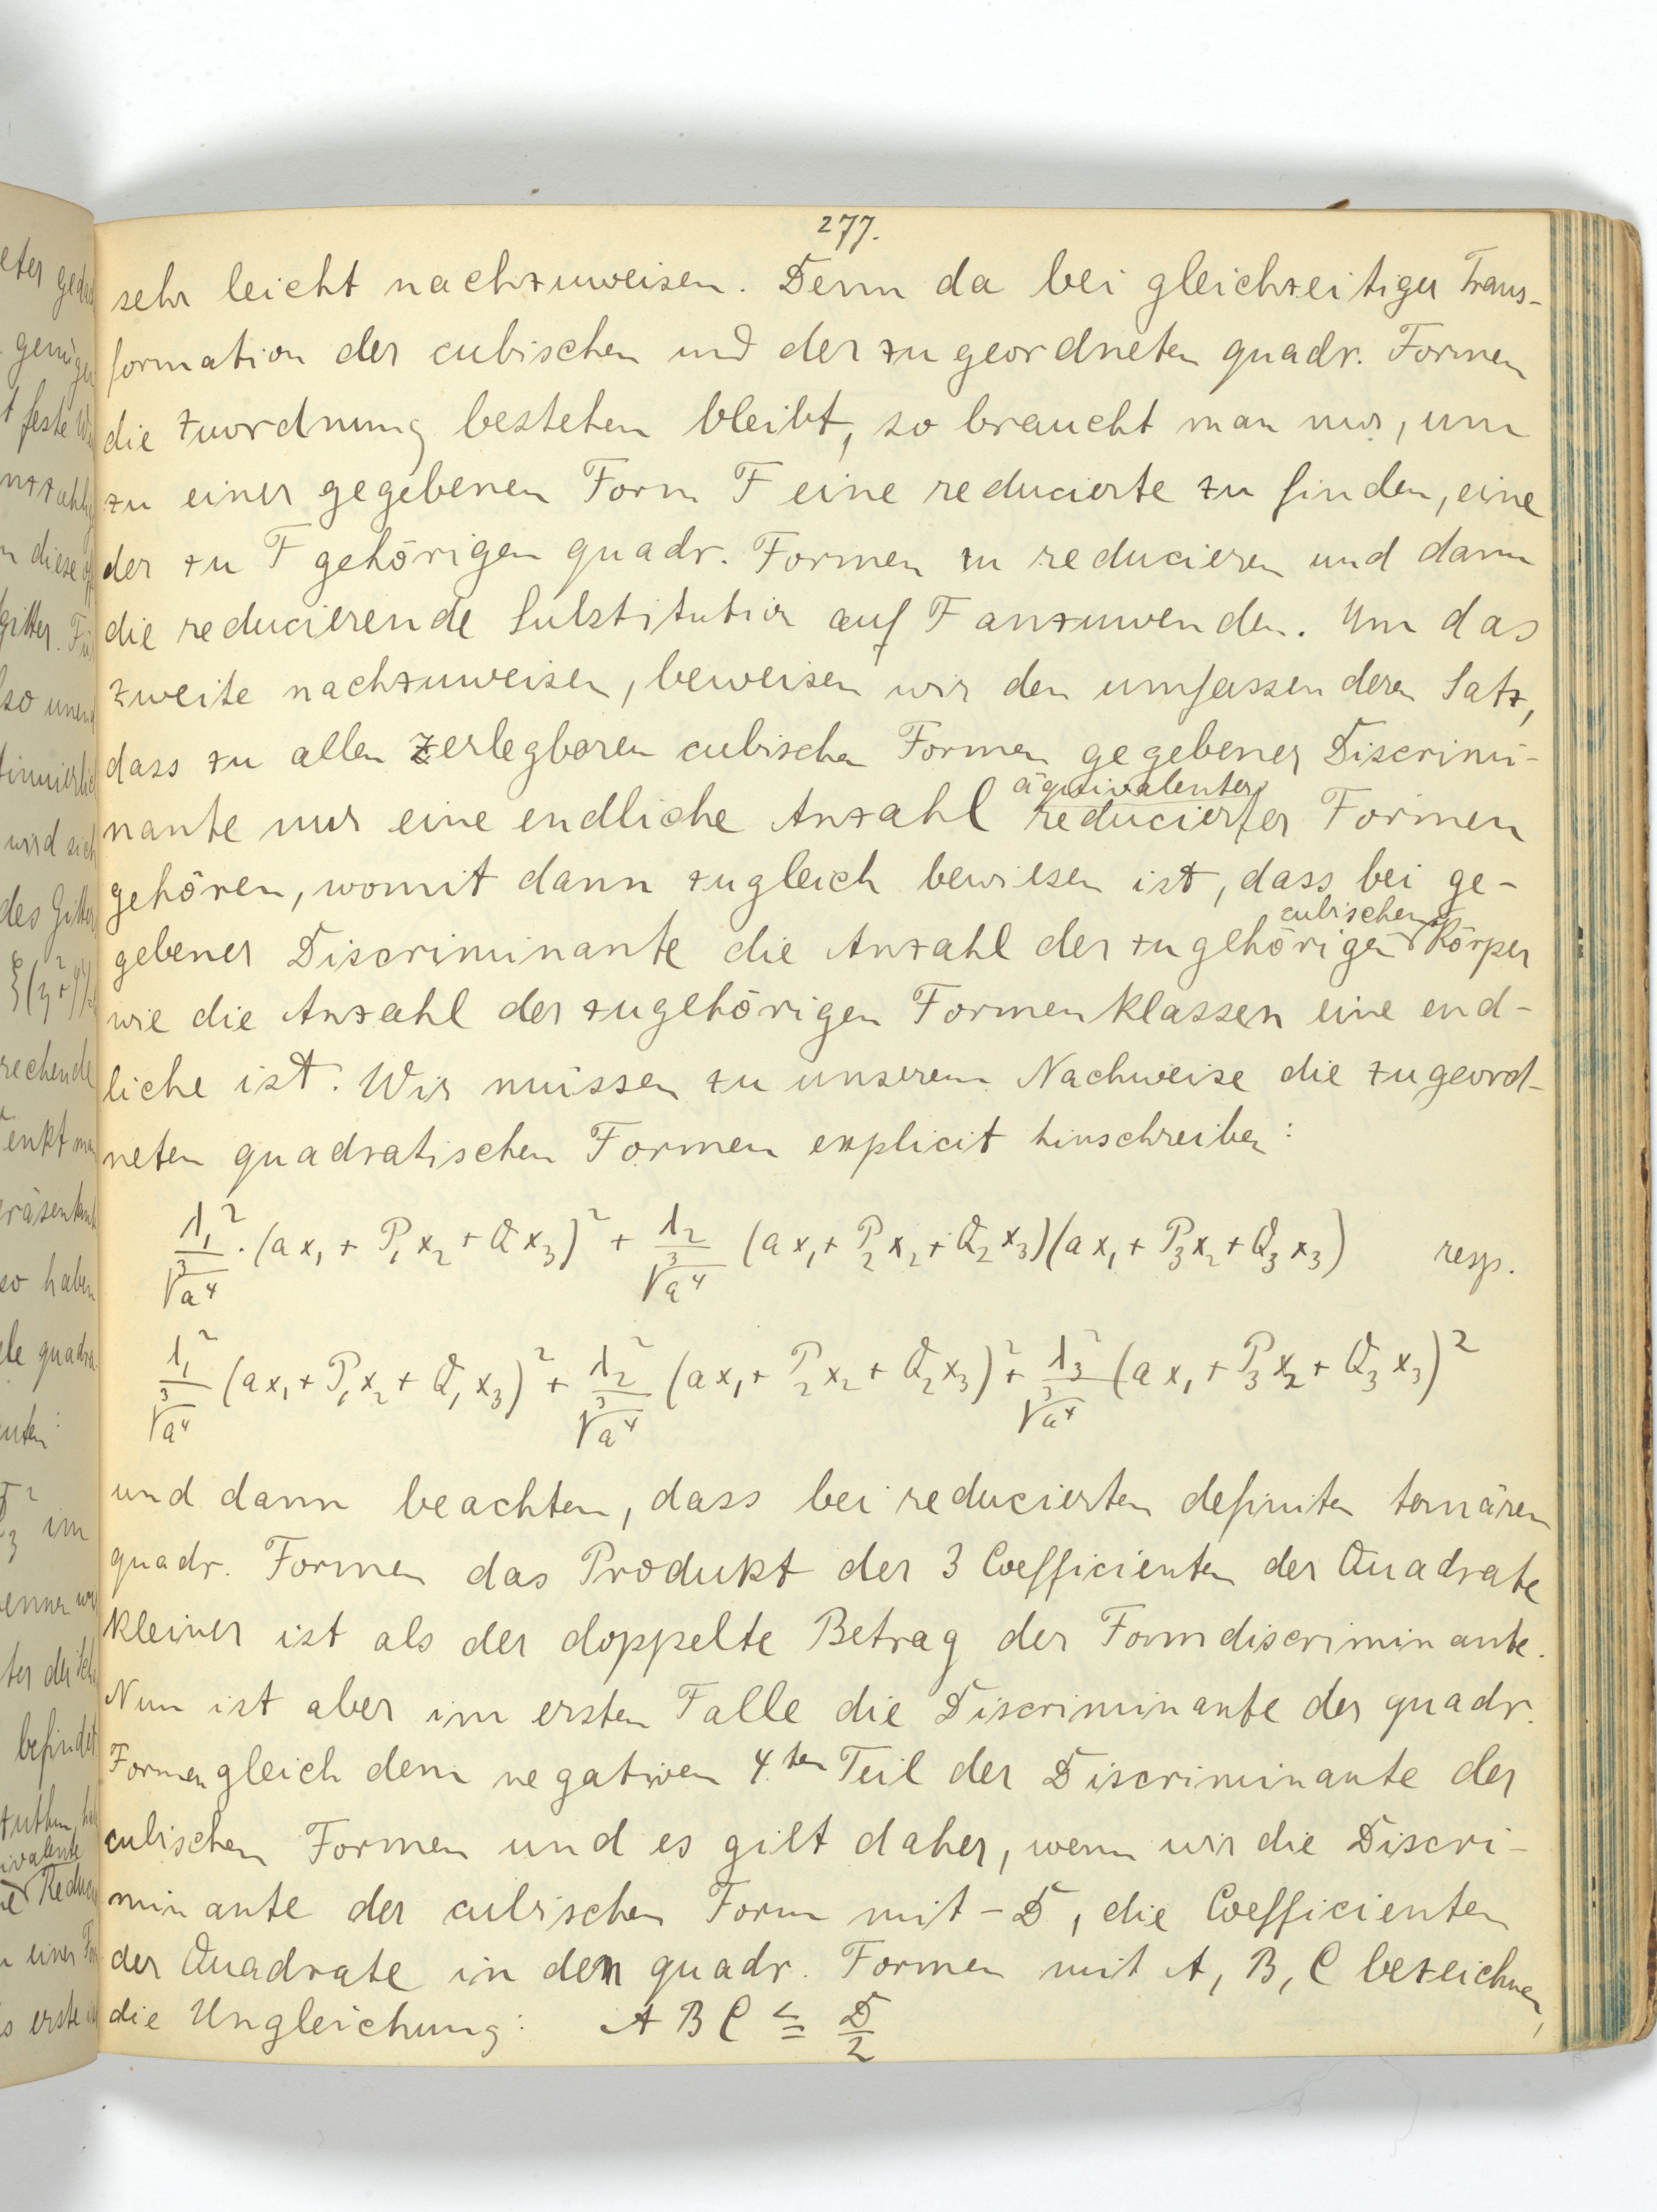 277.
sehr leicht nachzuweisen. Denn da bei gleichzeitiger Trans-
formation der cubischen und der zugeordneten quadr. Formen
die Zuordnung bestehen bleibt, so braucht man nur, um
zu einer gegebenen Form F eine reducierte zu finden, eine
der zu F gehörigen quadr. Formen zu reducieren und dann
die reducierende Substitution auf F anzuwenden. Um das
zweite nachzuweisen, beweisen wir den umfassenderen Satz,
dass zu allen zerlegbaren cubischen Formen gegebener Discrimi-
äquivalenter
nante nur eine endliche Anzahl reducierter Formen
gehören, womit dann zugleich bewiesen ist, dass bei ge-
cubischen
gebener Discriminante die Anzahl der zugehörigen Körper
wie die Anzahl der zugehörigen Formenklassen eine end-
liche ist. Wir müssen zu unserem Nachweise die zugeord-
neten quadratischen Formen explicit hinschreiben:
λ₁²/∛a⁴ · (ax₁ + P₁x₂ + Qx₃)² + λ₂/∛a⁴ (ax₁ + P₂x₂ + Q₂x₃)(ax₁ + P₃x₂ + Q₃x₃) resp.
λ₁²/∛a⁴ (ax₁ + P₁x₂ + Q₁x₃)² + λ₂²/∛a⁴ (ax₁ + P₂x₂ + Q₂x₃)² + λ₃²/∛a⁴ (ax₁ + P₃x₂ + Q₃x₃)²
und dann beachten, dass bei reducierten definiten ternären
quadr. Formen das Produkt der 3 Coefficienten der Quadrate
kleiner ist als der doppelte Betrag der Formdiscriminante.
Nun ist aber im ersten Falle die Discriminante der quadr.
Formen gleich dem negativen 4ten Teil der Discriminante der
cubischen Formen und es gilt daher, wenn wir die Discri-
minante der cubischen Form mit -D, die Coefficienten
der Quadrate in den quadr. Formen mit A, B, C bezeichnen,
die Ungleichung: A B C ≦ D/2